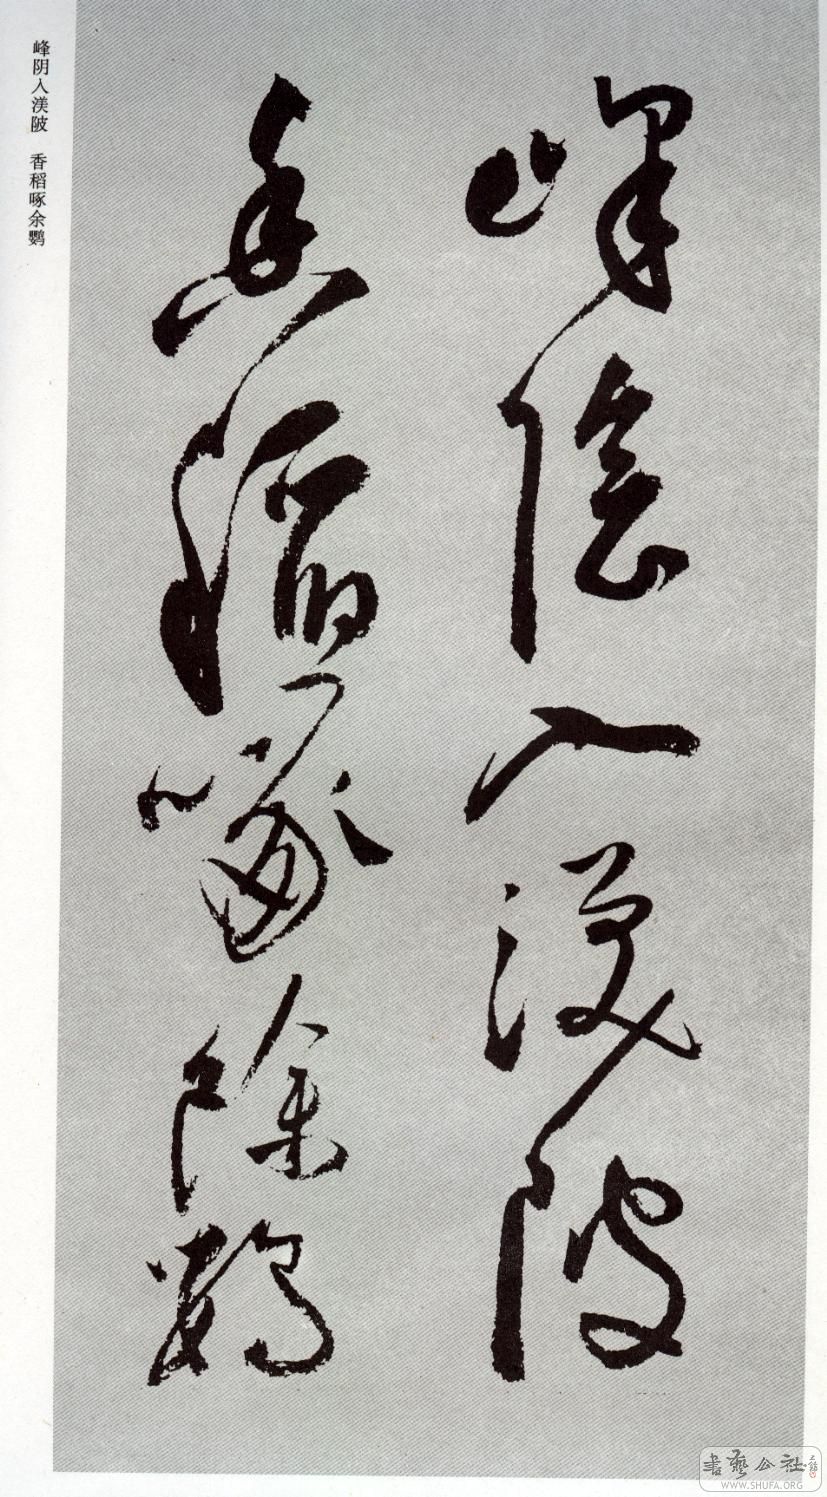 峰陰入渼陂
香稻啄餘鸚
峰阴入渼陂 香稻啄余鹦
書藝公社
WWW.SHUFA.ORG